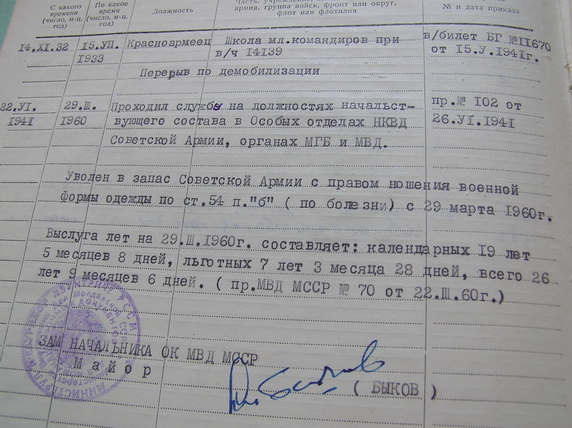 С какого времени (число, м-ц, год)
По какое время (число, м-ц, год)
Должность
армия, группа войск, фронт или округ, флот или флотилия
№ и дата приказа
14.XI.32 15.VII.1933 Красноармеец Школа мл.командиров при в/ч 14139 в/билет БГ №II670 от 15.У.1941г.
Перерыв по демобилизации
22.УI.1941 29.Ш.1960 Проходил службы на должностях начальст-
вующего состава в Особых отделах НКВД
Советской Армии, органах МГБ и МВД.
пр.№ 102 от 26.УI.1941
Уволен в запас Советской Армии с правом ношения военной
формы одежды по ст.54 п."б" ( по болезни) с 29 марта 1960г.
Выслуга лет на 29.Ш.1960г. составляет: календарных 19 лет
5 месяцев 8 дней, льготных 7 лет 3 месяца 28 дней, всего 26
лет 9 месяцев 6 дней. ( пр.МВД МССР № 70 от 22.Ш.60г.)
ЗАМ НАЧАЛЬНИКА ОК МВД МССР
Майор
( БЫКОВ )